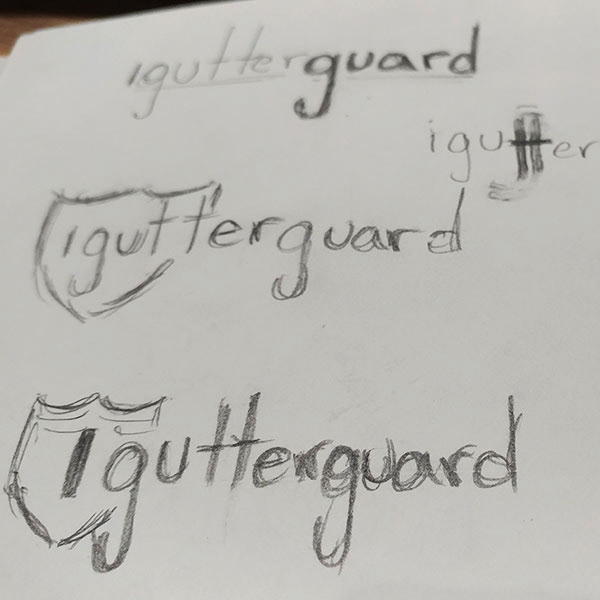 igutterguard
igutter
igutterguard
igutterguard